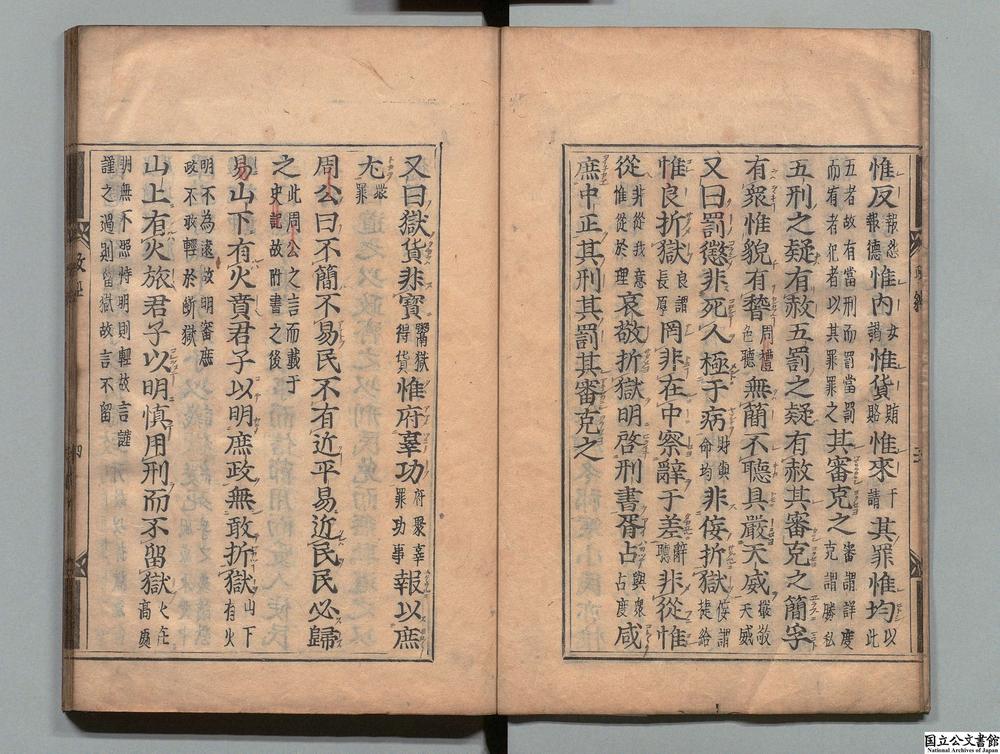 惟反報怨報德惟内女謁惟貨賄賂惟來干請其罪惟均以此
五者故有當刑而罰當罰而有者犯者以其罪罪之其審克之審謂詳度克謂勝私
五刑之疑有赦五罰之疑有赦其審克之簡孚
有衆惟貌有稽周禮色聽無簡不聽具嚴天威嚴敬天威
又曰罰懲非死人極于病財與命均非佞折獄佞謂捷給
惟良折獄良謂長厚罔非在中察辭于差辭聽非從惟
從非從我意惟從於理哀敬折獄明啓刑書胥占與衆占度咸
庶中正其刑其罰其審克之
又曰獄貨非寶鬻獄得貨惟府辜功府聚辜罪功事報以庶
尤衆罪
周公曰不簡不易民不有近平易近民民必歸
之此周公之言而載于史記故附書之後
易山下有火賁君子以明庶政無敢折獄山下有火
明不為遠故明審庶政不敢輕於斷獄
山上有火旅君子以明慎用刑而不留獄火在高處
明無不照恃明則輕故言謹謹之過則留獄故言不留
政經
四
国立公文書館
National Archives of Japan